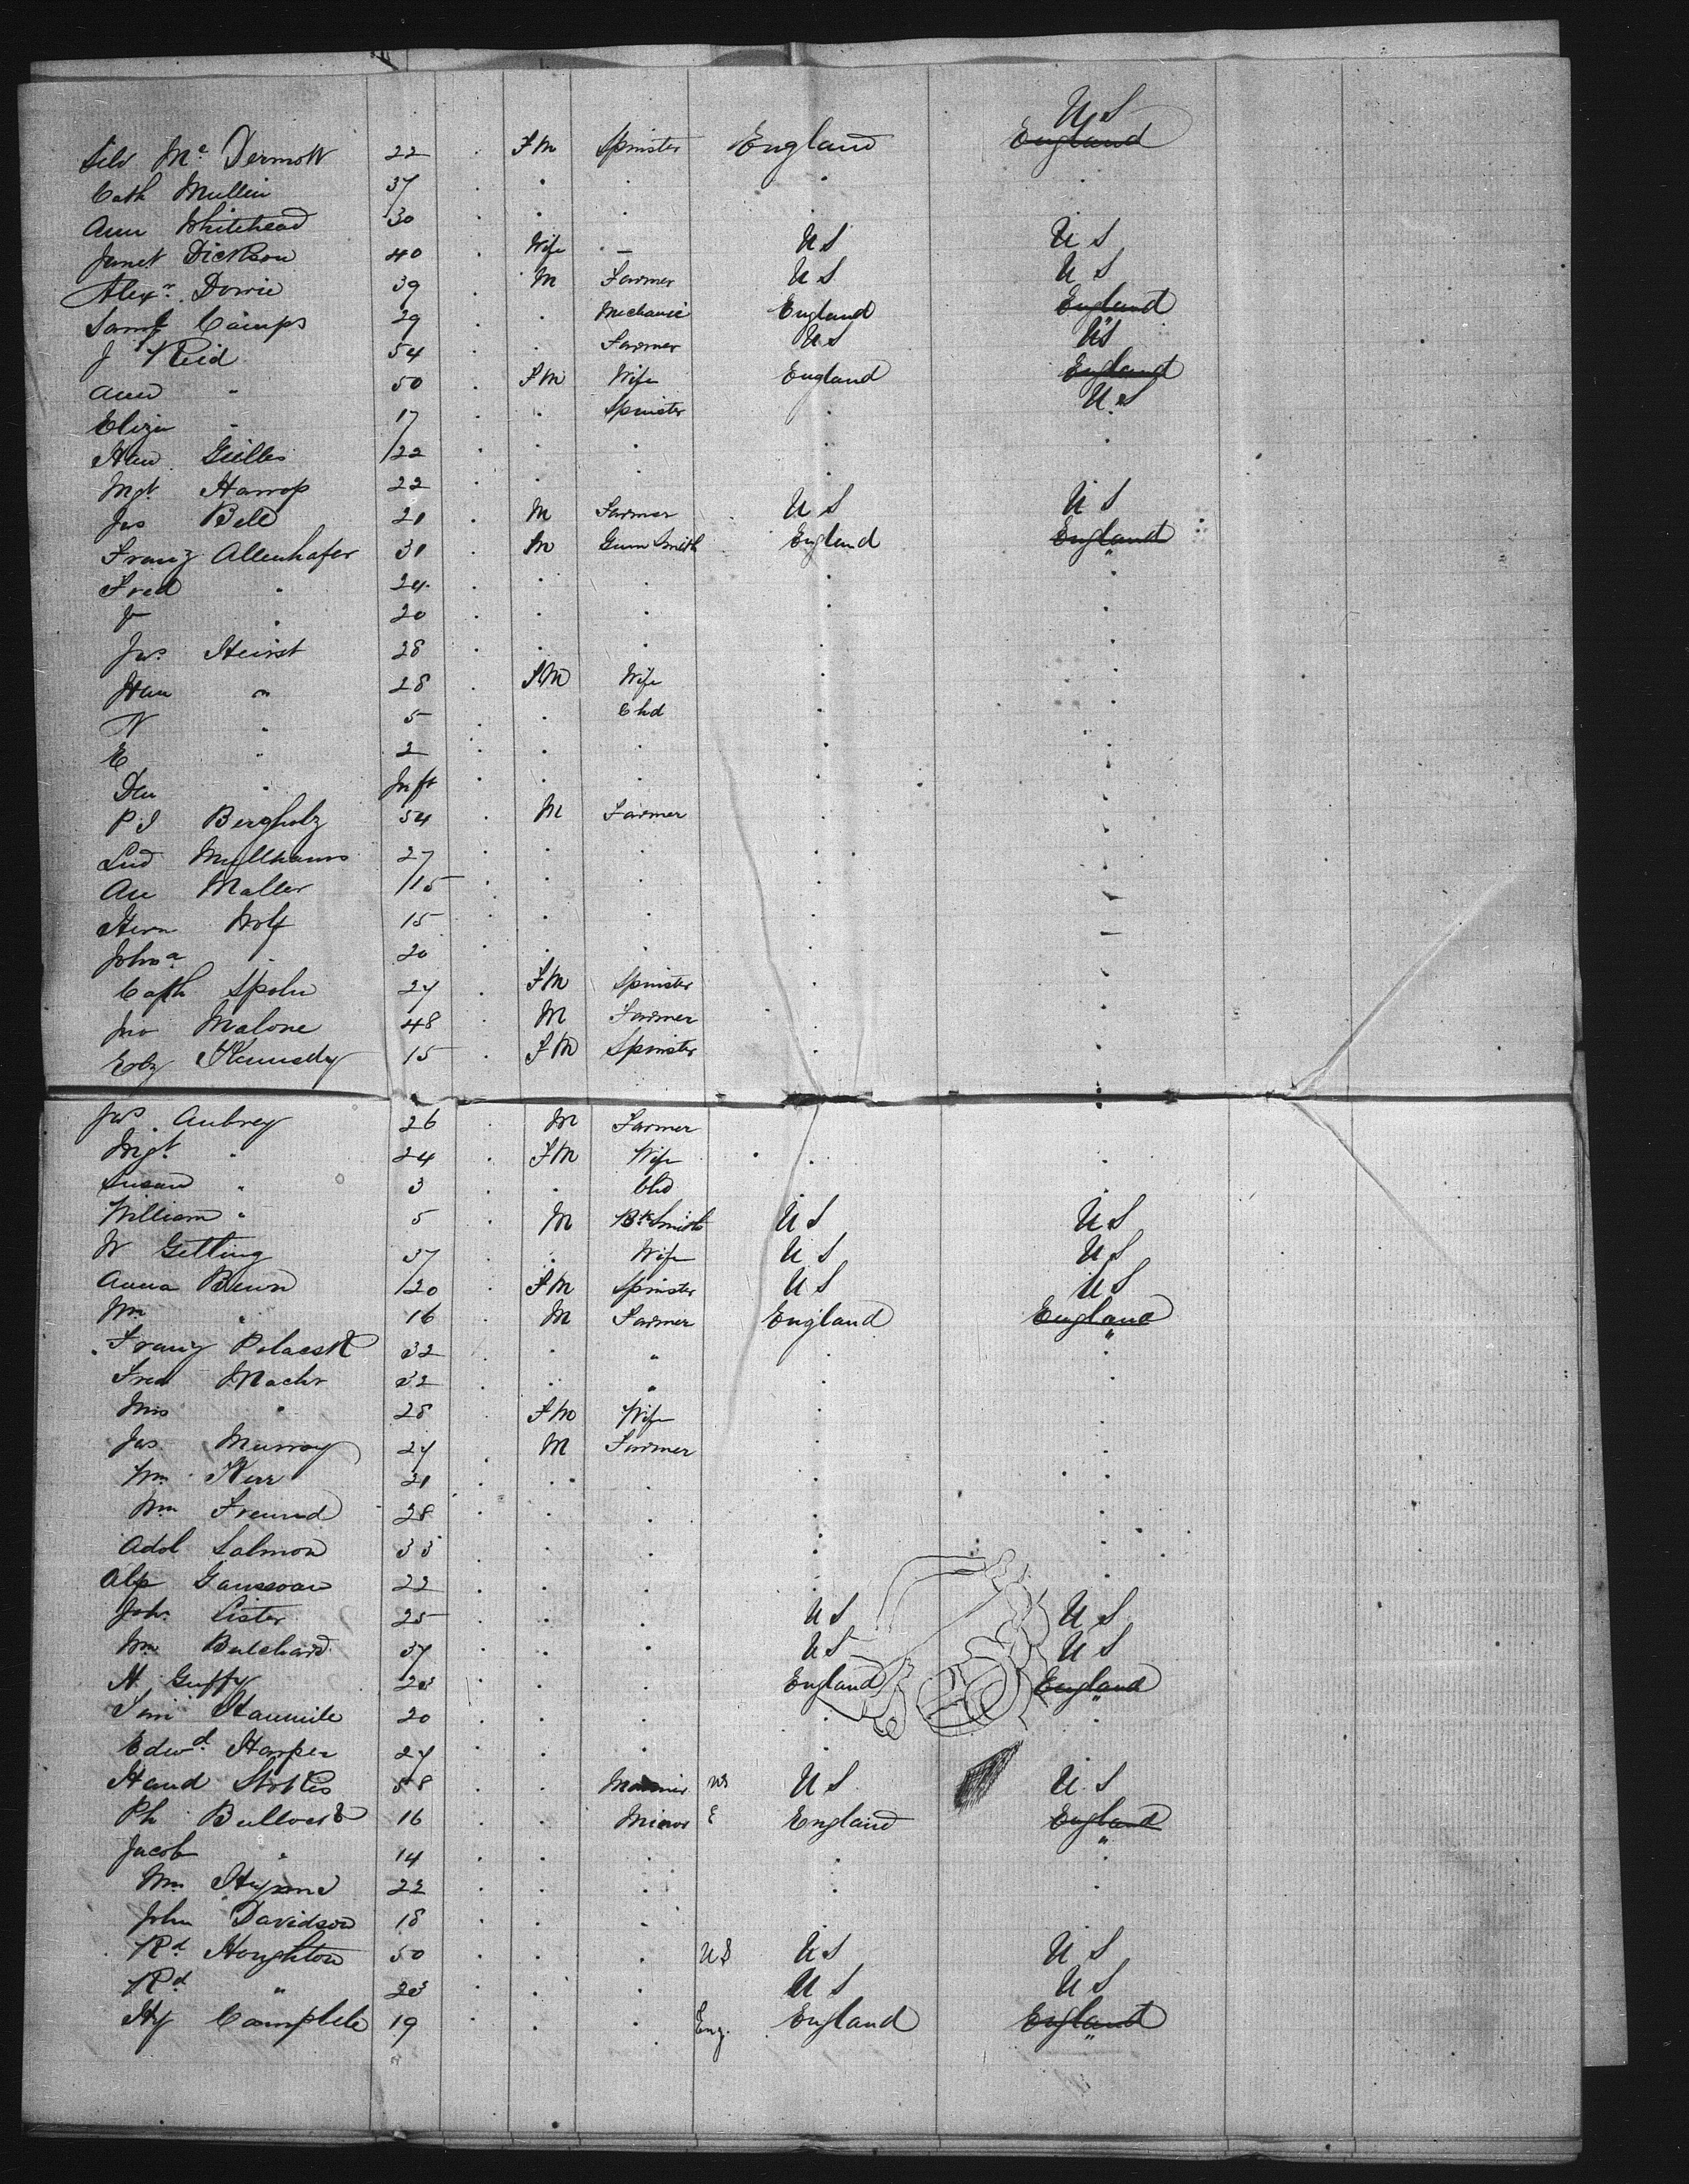 U S
Mc Dermott 22 . F M Spinster England England
Cath Mullin 37 . . . . .
Ann Whitehead 30 . . . .
Janet Dickson 40 . Wife - U S U S
Alexr. Dowie 39 . M Farmer U S U S
Saml Camps 29 . . Mechanic England England
J Reid 54 . . Farmer U S US
Ann " 50 . F M Wife England England
Eliza " 17 . . Spinster . U.S
Han Gilles 22 . . . . .
Mgt Harrop 22 . . . .
Jas Bell 21 . M Farmer U S U S
Franz Allenhafer 31 . M Gunn Smith England England
Fred " 24 . . . . "
J " 20 . . . . .
Jas Heirst 28 . . . .
Han " 28 . F M Wife . .
N " 5 . . Chd . .
E " 2 . . . . .
Den " Inft . . . .
P J Bergholz 54 . M Farmer . .
Lud Mullhaws 27 . . . . .
Au Maller 15 . . . .
Hern Wolf 15 . . . .
Johna . 20 . . .
Cath Spohn 24 . F M Spinster . .
Jno Malone 48 . M Farmer .
Elz Kennedy 15 . F M Spinster . .
Jas Aubrey 26 . M Farmer
Mgt " 24 . F M Wife . .
Susan " 3 . . Chd .
William " 5 . M Bk Smith U S U S
W Getting 37 . . Wife U S U S
Anna Bewn 20 . F M Spinster U S U S
Wm " 16 . M Farmer England England
Franz Polacsk 32 . . " . "
Fred Machr 32 . . " . .
Mrs " 28 . F M Wife . .
Jas Murray 24 . M Farmer . .
Wm Kerr 21 . . . . .
Wm Freund 28 . . . . .
Adol Salmon 33 . . . . .
Alp 22 . . . . .
John Lister 25 . . . U S U S
Wm Butchard 37 . . . U S U S
H Guffy 23 . . . England England
20 . . . . "
Edwd. Harper 24 . . . .
58 . . US U S U S
Ph 16 . . Minor E England England
Jacob " 14 . . . . "
Wm 22 . . . . .
John Davidson 18 . . . .
Rd Houghton 50 . . . US U S U S
Rd " 23 . . . U S U S
Hy Complete 19 . . . Eng. England England